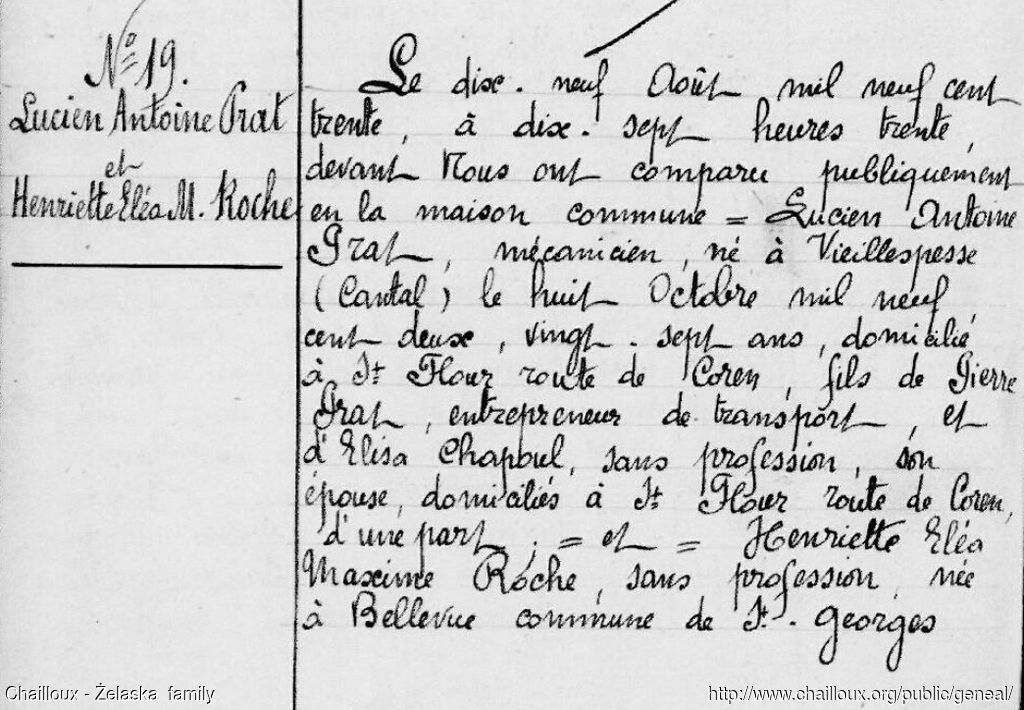 Nº 19.
Lucien Antoine Prat
et
Henriette Eléa M. Roche
Le dix-neuf Août mil neuf cent
trente, à dix-sept heures trente,
devant Nous ont comparu publiquement
en la maison commune = Lucien Antoine
Prat, mécanicien, né à Vieillespesse
(Cantal) le huit Octobre mil neuf
cent deux, vingt-sept ans, domicilié
à St Flour route de Coren, fils de Pierre
Prat, entrepreneur de transport, et
d'Elisa Chapoul, sans profession, son
épouse, domiciliés à St Flour route de Coren,
d'une part ; = et = Henriette Eléa
Maxime Roche, sans profession, née
à Bellevue commune de St-Georges
Chailloux - Želaska family
http://www.chailloux.org/public/geneal/